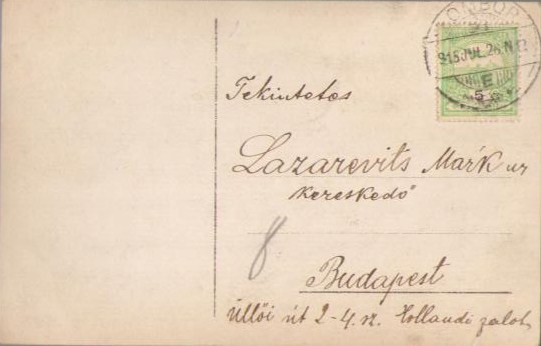 ZOMBOR
915 JUL. 26. N. 12
E
5
Tekintetes
Lazarevits Márk ur
kereskedő
8
Budapest
Üllői út 2-4. sz. Hollandi